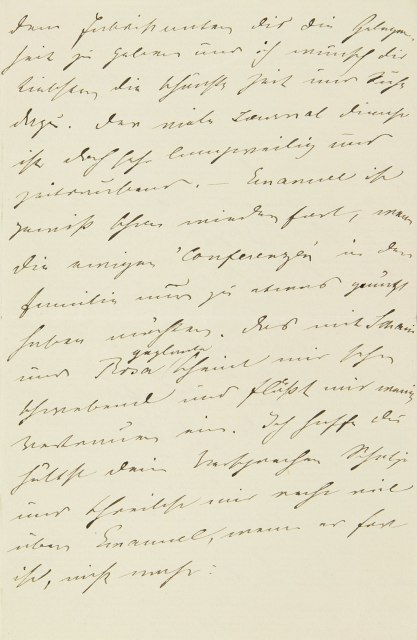 dem Fabrikanten dir die Gelegen-
heit zu geben und ich wünsch dir
die schönste Zeit und Ruhe
dazu. Der viele Journal dienst
ist doch sehr langweilig und
zeitraubend. – Emanuel ist
gewiß schon wieder fort, wenn
die ewigen "Conferenzen" in der
Familie nur zu etwas genützt
haben möchten. Das mit
und Rosa scheint mir sehr
schwebend und flößt mir wenig
Vertrauen ein. Ich hoffe du
hältst dein Versprechen
und schreibst mir recht viel
über Emanuel, wenn er fort
ist, nicht wahr?